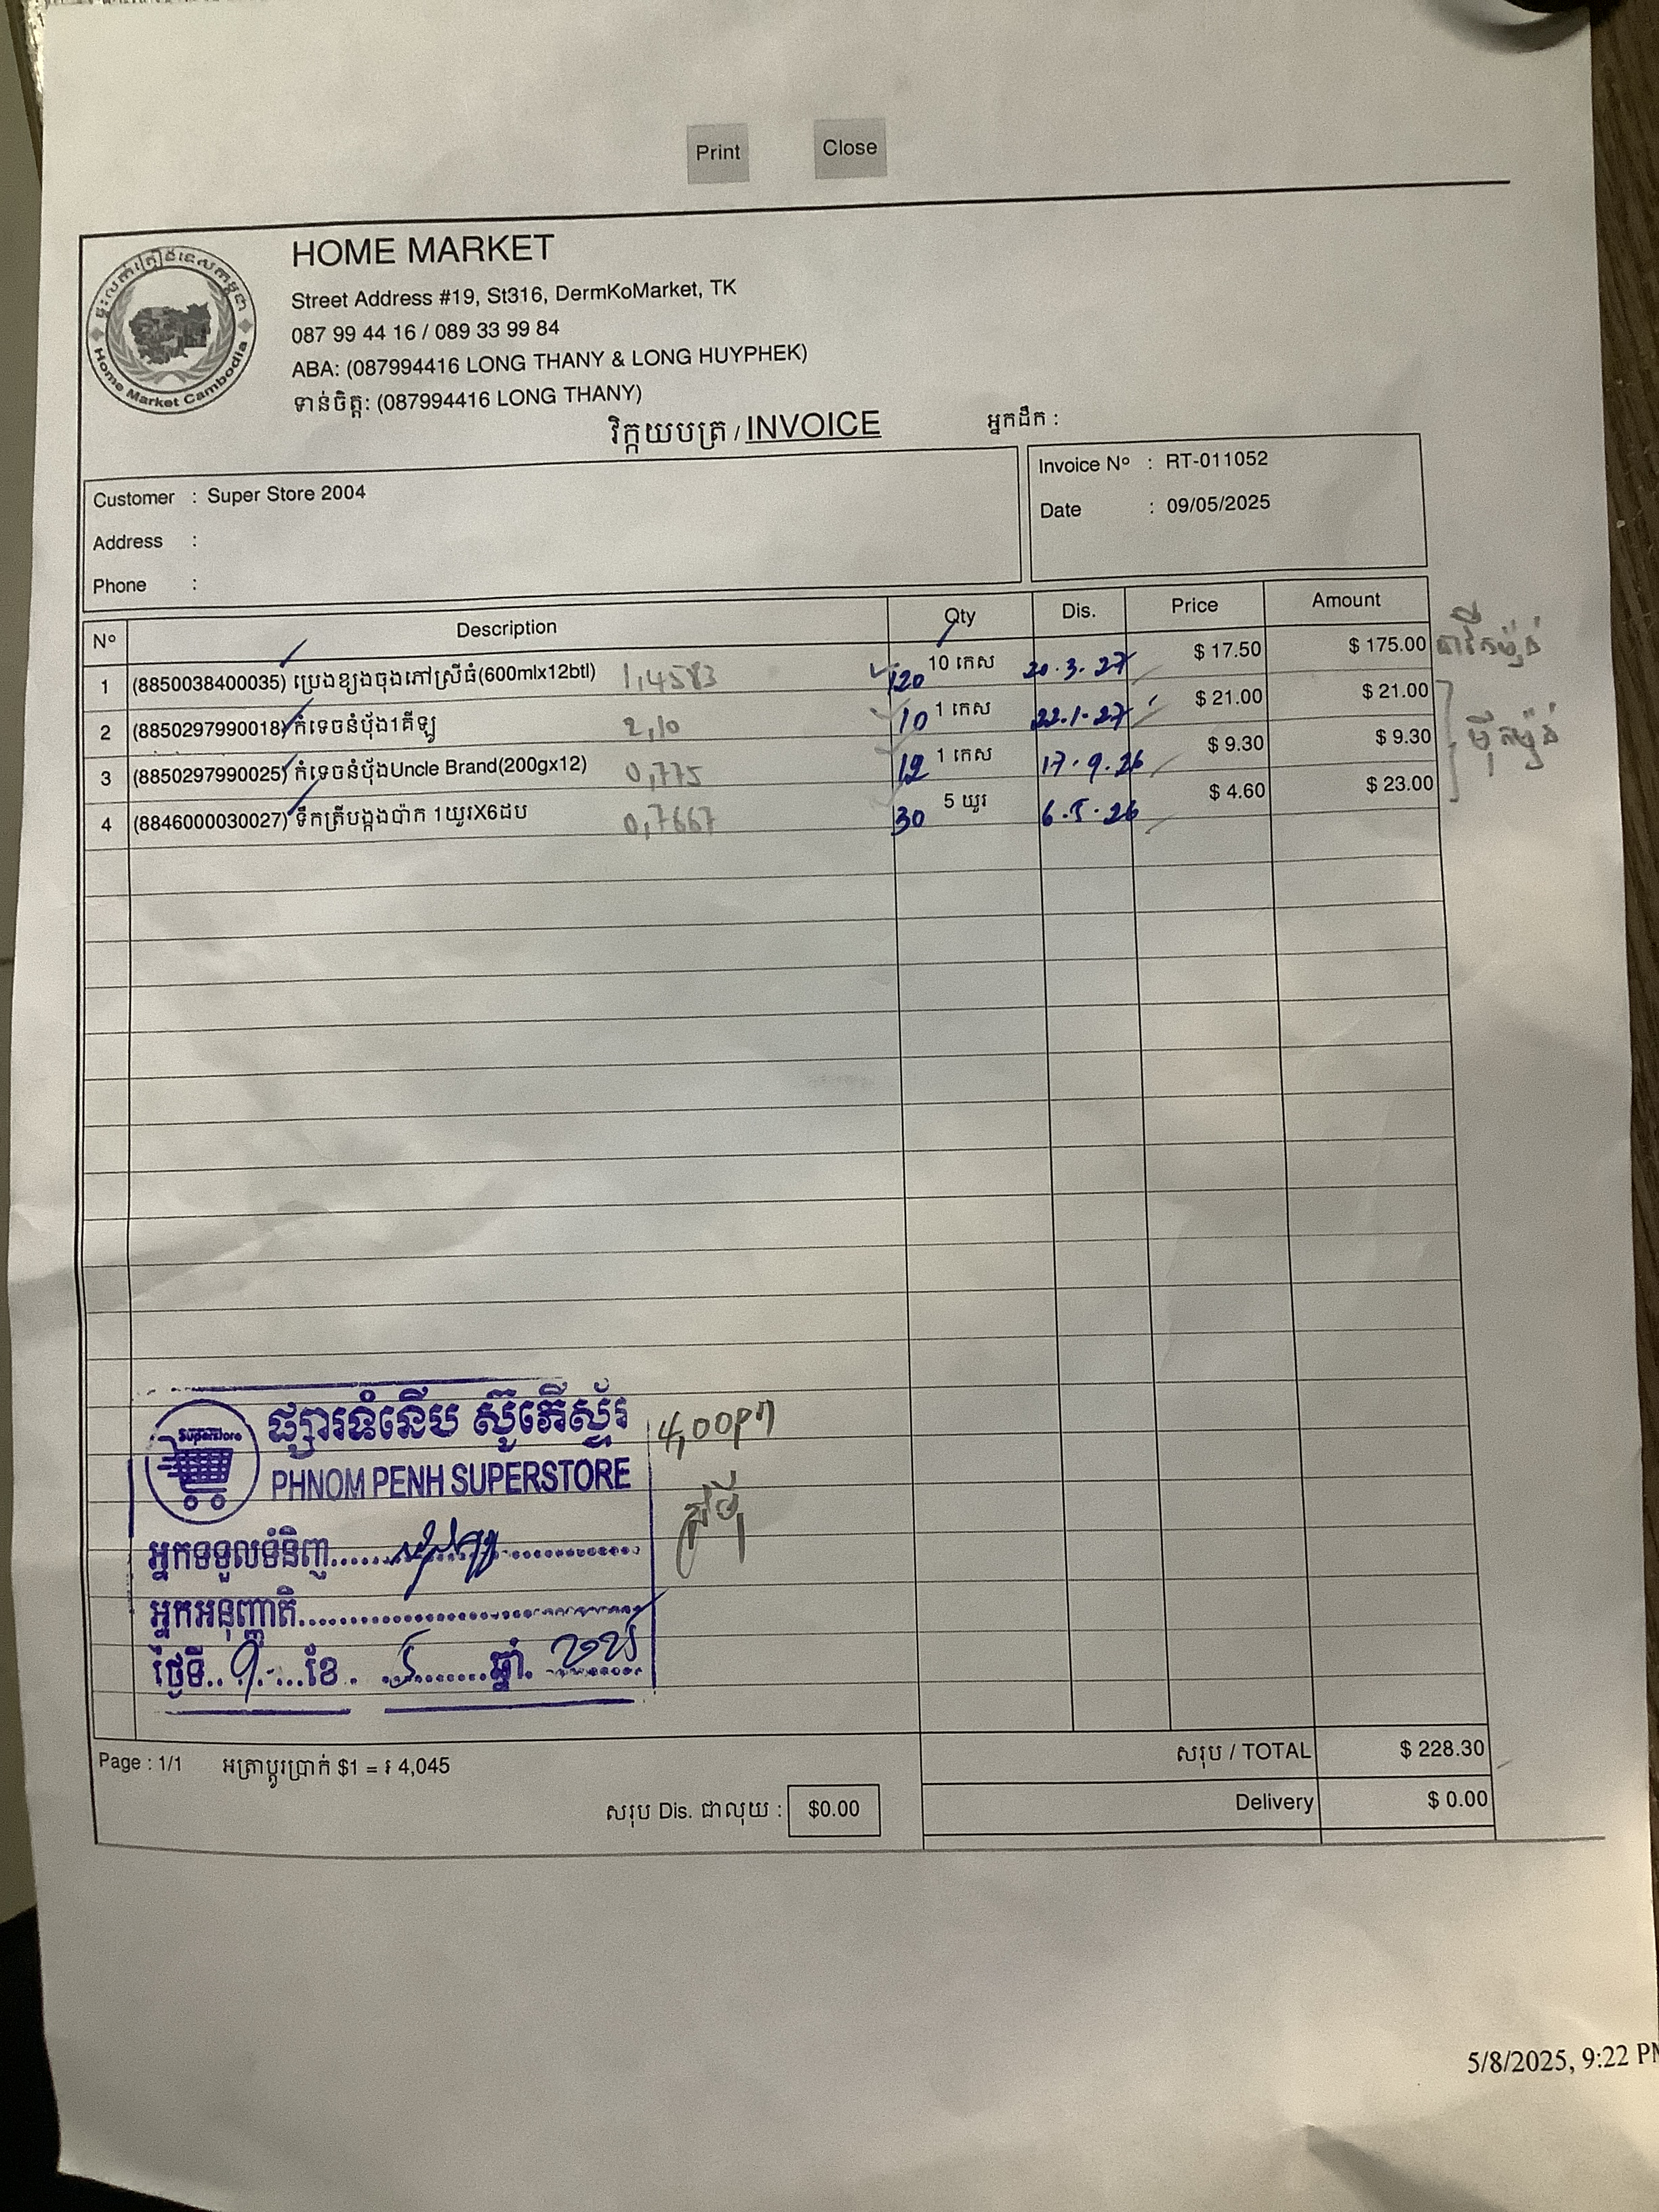 Print Close
Home Market Cambodia
HOME MARKET
Street Address #19, St316, DermKoMarket, TK
087 99 44 16 / 089 33 99 84
ABA: (087994416 LONG THANY & LONG HUYPHEK)
ទាន់ចិត្ត: (087994416 LONG THANY)
វិក្កយបត្រ / INVOICE អ្នកដឹក :
Customer : Super Store 2004
Address :
Phone :
Invoice Nº : RT-011052
Date : 09/05/2025
Nº Description Qty Dis. Price Amount
1 (8850038400035) ប្រេងខ្យងចុងភៅស្រីធំ(600mlx12btl) 1,4583 120 10 កេស 20.3.27 $ 17.50 $ 175.00
2 (8850297990018) កំទេចនំប៉័ង1គីឡូ 2,10 10 1 កេស 22.1.27 $ 21.00 $ 21.00
3 (8850297990025) កំទេចនំប៉័ងUncle Brand(200gx12) 0,775 12 1 កេស 17.9.26 $ 9.30 $ 9.30
4 (8846000030027) ទឹកត្រីបង្កងប៉ាក 1យួរX6ដប 0,7667 30 5 យួរ 6.5.26 $ 4.60 $ 23.00
Superstore
ផ្សារទំនើប ស៊ូភើស្ទ័រ
PHNOM PENH SUPERSTORE
អ្នកទទួលទំនិញ
អ្នកអនុញ្ញាតិ
ថ្ងៃទី 9 ខែ 5 ឆ្នាំ
Page : 1/1 អត្រាប្តូរប្រាក់ $1 = ៛ 4,045
សរុប / TOTAL $ 228.30
សរុប Dis. ជាលុយ : $0.00
Delivery $ 0.00
5/8/2025, 9:22 PM